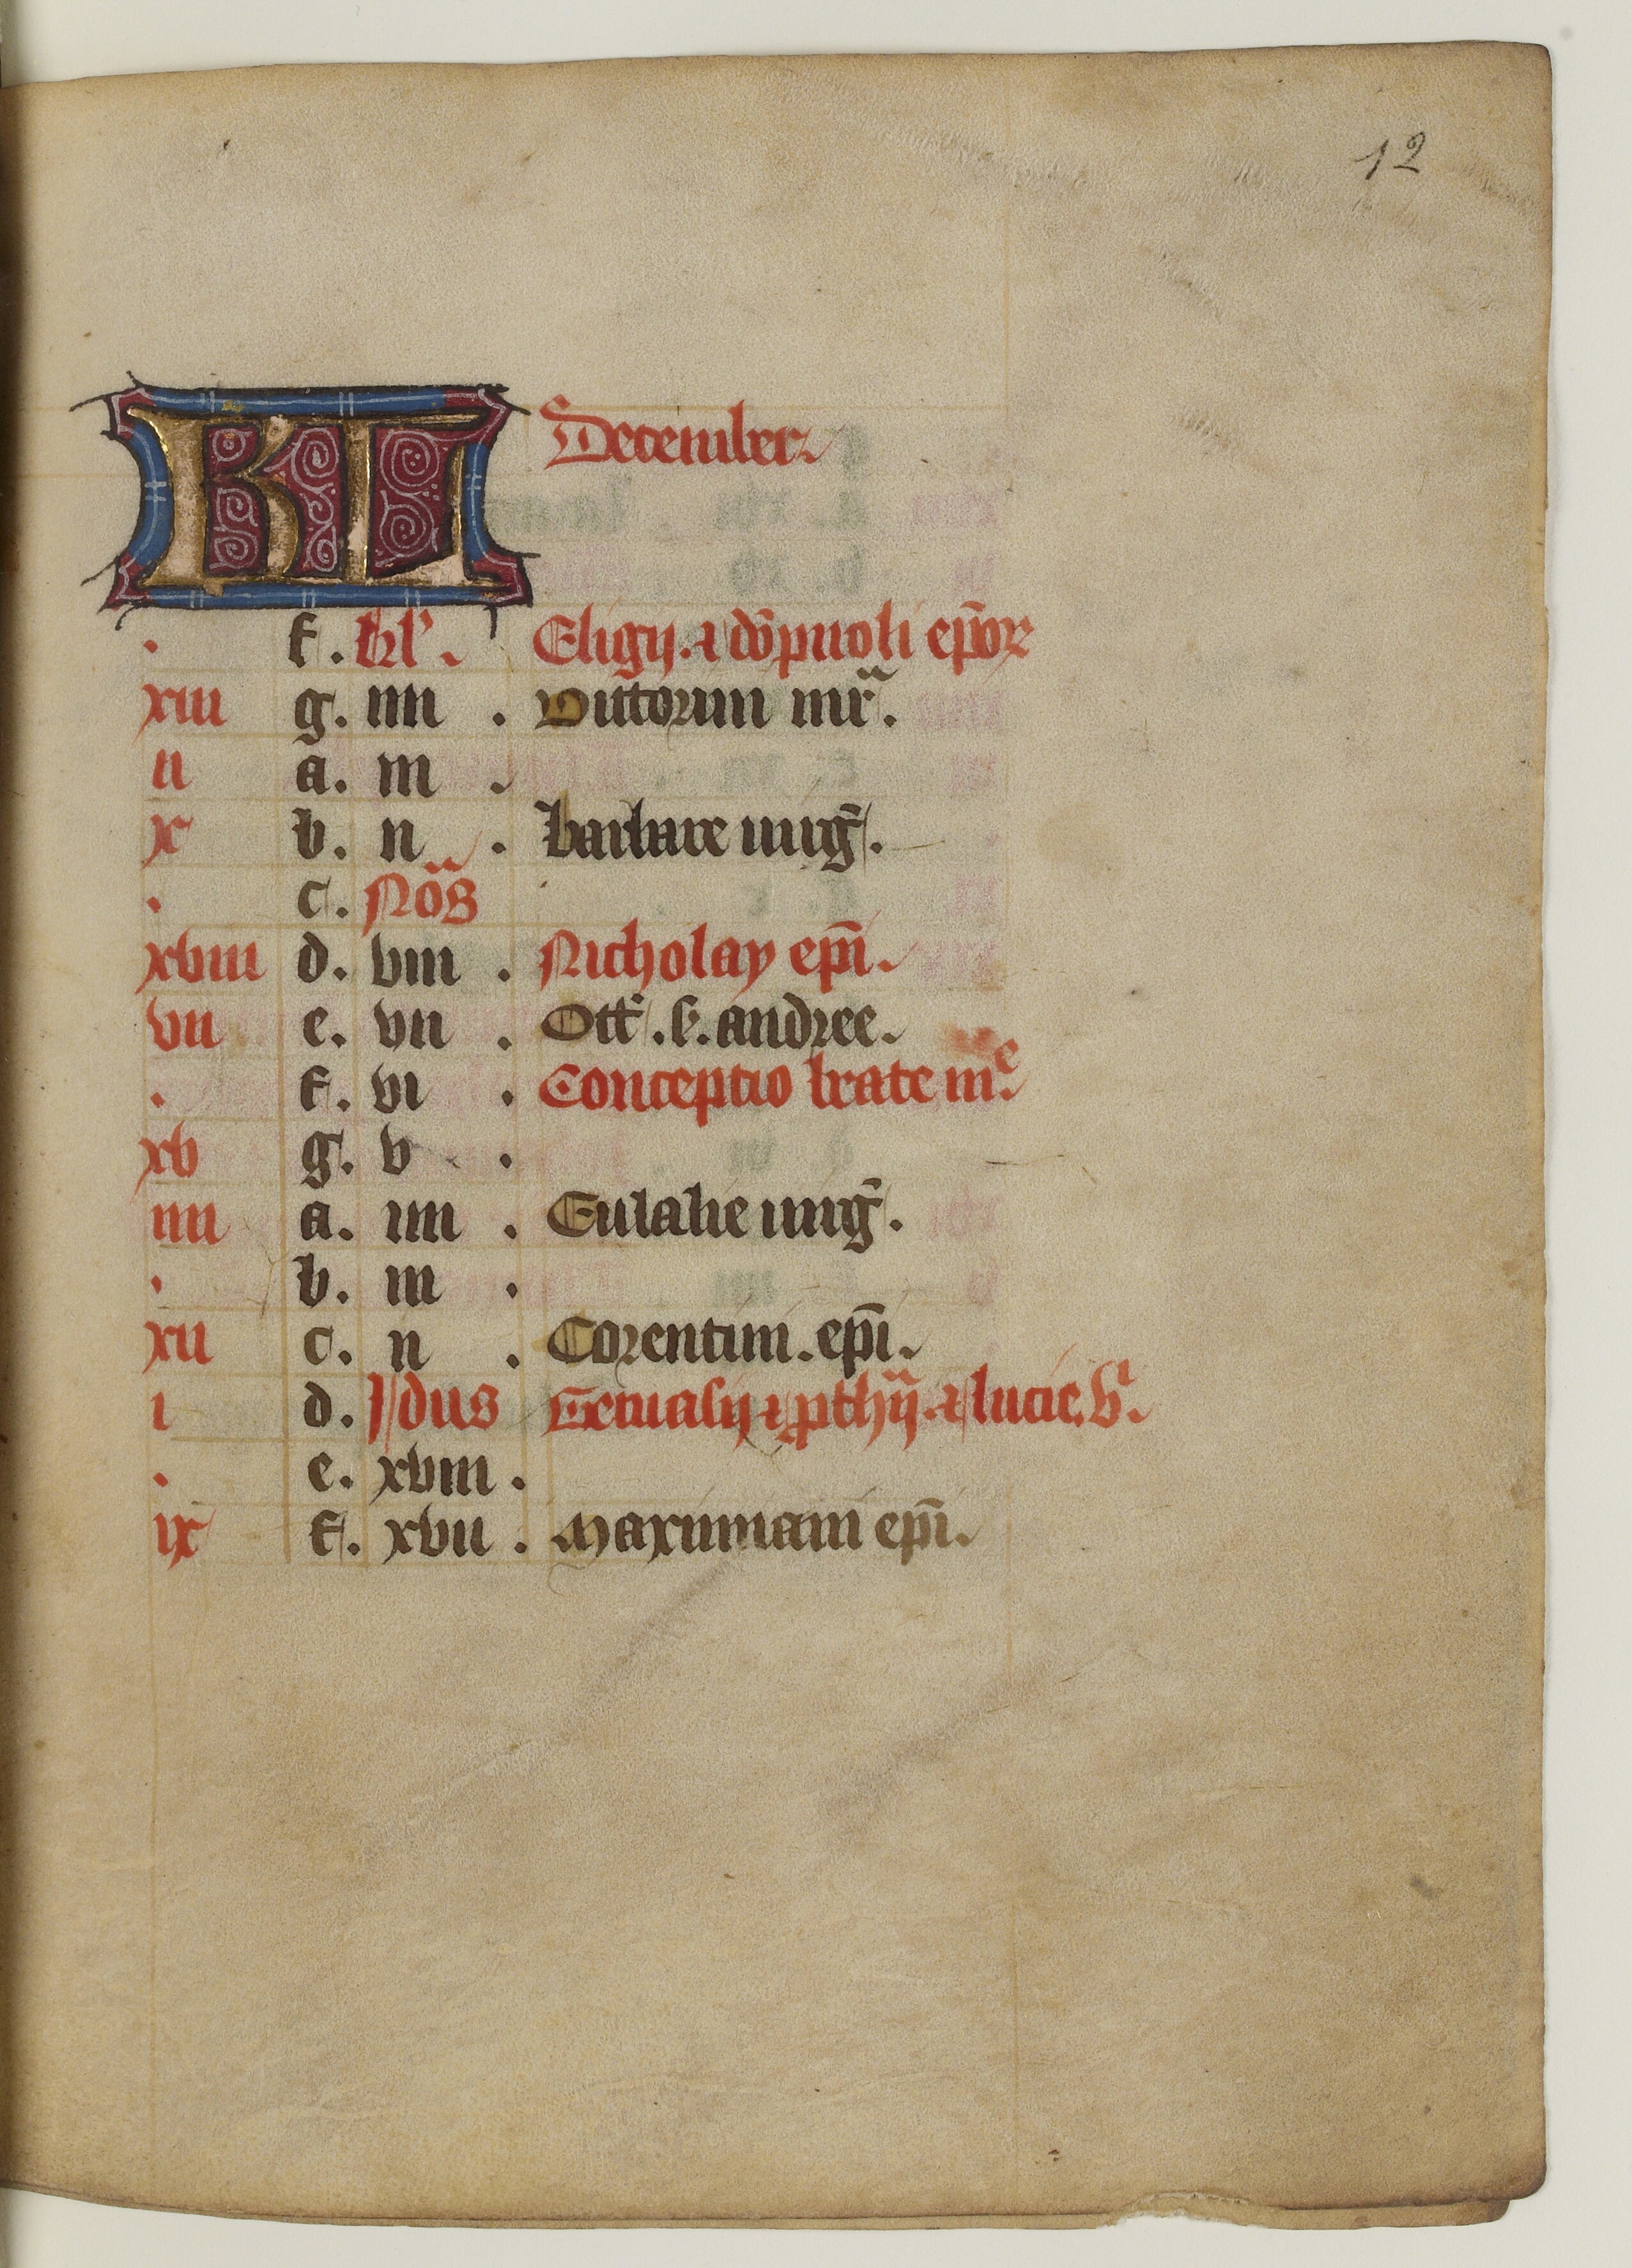 12
KL December
. f. kl'. Eligij. ⁊ do͂pnoli ep̄or
xiii g. iiii . victorini mr̃.
ii a. iii .
x b. ii . barbare uirg̃.
. c. No͂s
xviii d. viii . Nicholay ep̄i.
vii e. vii . Oct̃. s. andree.
. f. vi . Conceptio beate mᵉ
xv g. v .
iiii a. iiii . Eulalie uirg̃.
. b. iii .
xii c. ii . Corentini. ep̄i.
i d. Jdus ⁊ lucie. v̾.
. e. xviii .
ix f. xvii . Maximiani ep̄i.